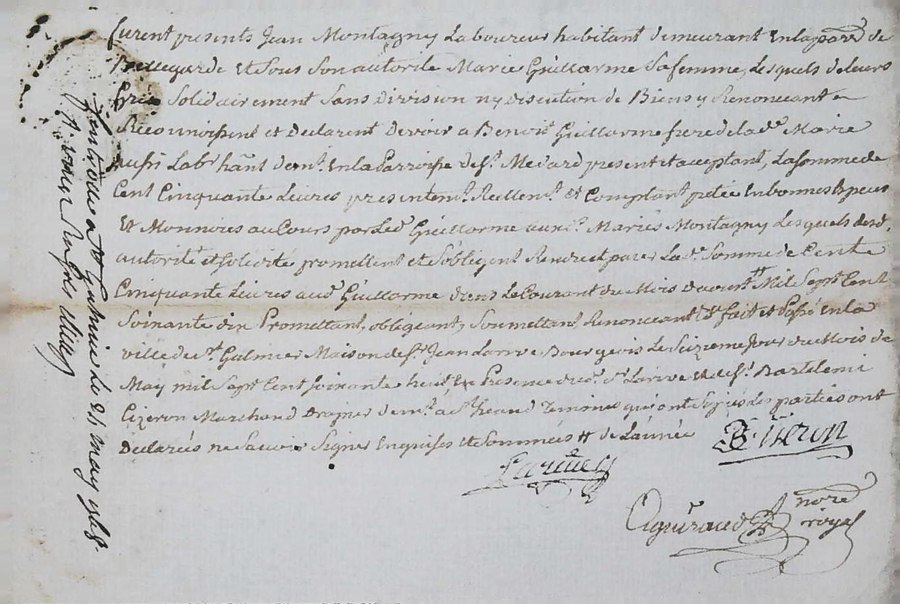 furent présents Jean Montagny Laboureur habitant demeurant En la parr.e de
Bellegarde Et Sous Son autorité Marie Guillarme Sa femme, Lesquels de leurs
Grés Solidairement Sans Division ny Discution de Biens y Renonceant
Reconnoissent et Declarent Devoir a Benoit Guillarme frere de lad.e Marie
aussi Lab.r ha.nt dem.t En la Parroisse de S.t Medard present et aceptant, La Somme de
Cent Cinquante Livres presentem.t Réellem.t et Comptant pretée En bonnes Especes
Et Monnoies au Cours par Led. Guillarme aux d. Mariés Montagny Lesquels de lad.
autorité et Solidité promettent et S'obligent Rendre et paier Lad.e Somme de Cent
Cinquante Livres aud. Guillarme Dans Le Courant du Mois D'aoust Mil Sept Cent
Soixante dix Promettant, obligeant, Soumettant Renonceant &c fait et Passé En la
ville de S.t Galmier Maison de S.r Jean Larive Bourgeois Le Seizieme Jour du Mois de
May mil Sept Cent Soixante huit En Presence dud. S.r Larive et de S.r Bartelemi
Cizeron Marchand dem.t a S.t Heand Temoins qui ont Signés Les parties ont
Declarés ne Savoir Signer Enquises et Sommées de L'année
B. Cizeron
Larive
not.re
royal
Controllé a S.t Galmier Le 24 may 1768.